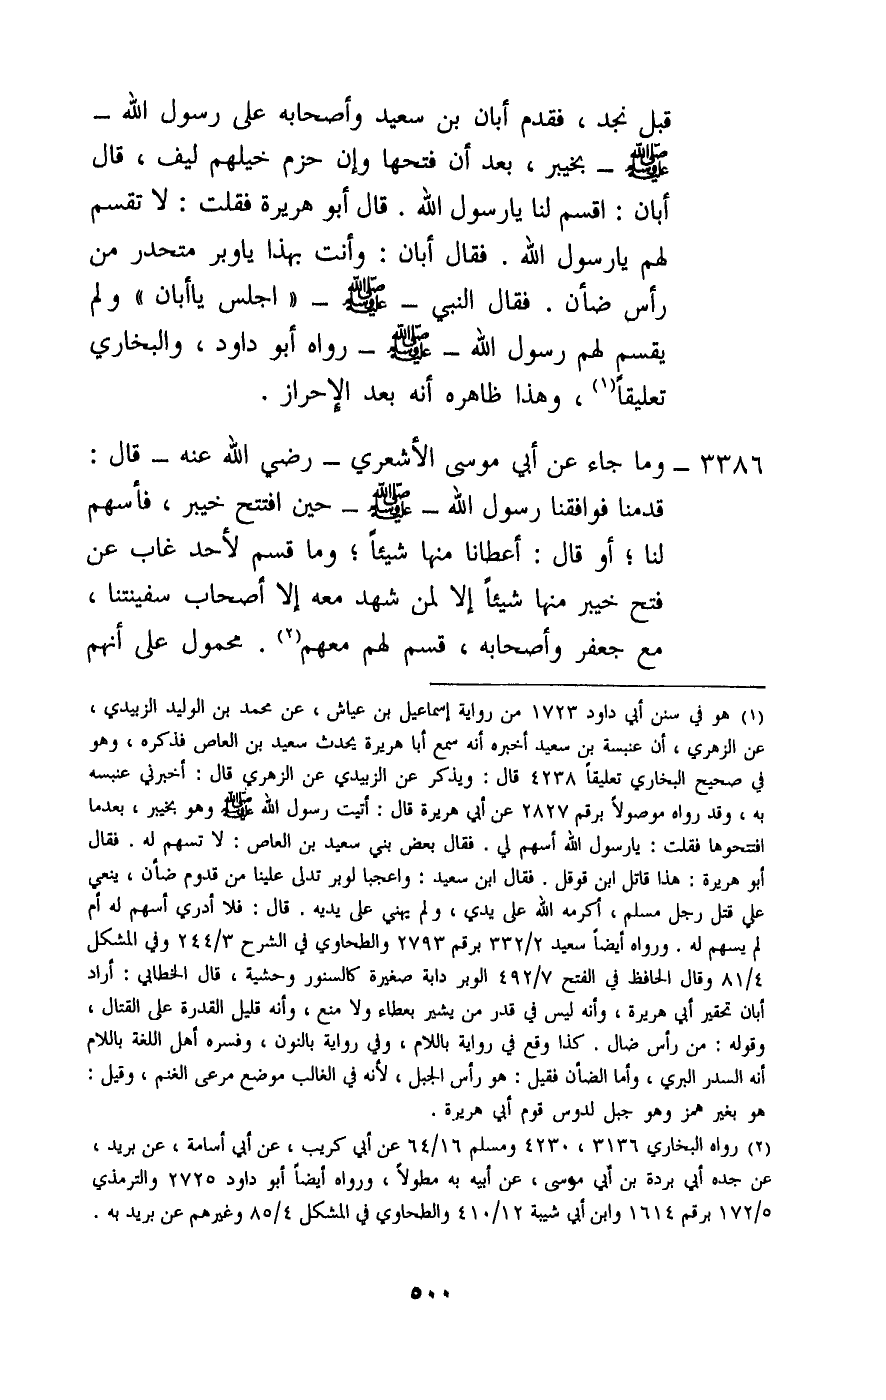 قبل نجد ، فقدم أبان بن سعيد وأصحابه على رسول الله ـ
ﷺ ـ بخيبر ، بعد أن فتحها وإن حزم خيلهم ليف ، قال
أبان : اقسم لنا يارسول الله . قال أبو هريرة فقلت : لا تقسم
لهم يارسول الله . فقال أبان : وأنت بهذا ياوبر متحدر من
رأس ضأن . فقال النبي ـ ﷺ ـ « اجلس ياأبان » ولم
يقسم لهم رسول الله ـ ﷺ ـ رواه أبو داود ، والبخاري
تعليقاً(١) ، وهذا ظاهره أنه بعد الإحراز .
٣٣٨٦ ـ وما جاء عن أبي موسى الأشعري ـ رضي الله عنه ـ قال :
قدمنا فوافقنا رسول الله ـ ﷺ ـ حين افتتح خيبر ، فأسهم
لنا ؛ أو قال : أعطانا منها شيئاً ؛ وما قسم لأحد غاب عن
فتح خيبر منها شيئاً إلا لمن شهد معه إلا أصحاب سفينتنا ،
مع جعفر وأصحابه ، قسم لهم معهم(٢) . محمول على أنهم
(١) هو في سنن أبي داود ١٧٢٣ من رواية إسماعيل بن عياش ، عن محمد بن الوليد الزبيدي ،
عن الزهري ، أن عنبسة بن سعيد أخبره أنه سمع أبا هريرة يحدث سعيد بن العاص فذكره ، وهو
في صحيح البخاري تعليقاً ٤٢٣٨ قال : ويذكر عن الزبيدي عن الزهري قال : أخبرني عنبسه
به ، وقد رواه موصولاً برقم ٢٨٢٧ عن أبي هريرة قال : أتيت رسول الله ﷺ وهو بخيبر ، بعدما
افتتحوها فقلت : يارسول الله أسهم لي . فقال بعض بني سعيد بن العاص : لا تسهم له . فقال
أبو هريرة : هذا قاتل ابن قوقل . فقال ابن سعيد : واعجبا لوبر تدلى علينا من قدوم ضأن ، ينعي
علي قتل رجل مسلم ، أكرمه الله على يدي ، ولم يهني على يديه . قال : فلا أدري أسهم له أم
لم يسهم له . ورواه أيضاً سعيد ٣٣٢/٢ برقم ٢٧٩٣ والطحاوي في الشرح ٢٤٤/٣ وفي المشكل
٨١/٤ وقال الحافظ في الفتح ٤٩٢/٧ الوبر دابة صغيرة كالسنور وحشية ، قال الخطابي : أراد
أبان تحقير أبي هريرة ، وأنه ليس في قدر من يشير بعطاء ولا منع ، وأنه قليل القدرة على القتال ،
وقوله : من رأس ضال . كذا وقع في رواية باللام ، وفي رواية بالنون ، وفسره أهل اللغة باللام
أنه السدر البري ، وأما الضأن فقيل : هو رأس الجبل ، لأنه في الغالب موضع مرعى الغنم ، وقيل :
هو بغير همز وهو جبل لدوس قوم أبي هريرة .
(٢) رواه البخاري ٣١٣٦ ، ٤٢٣٠ ومسلم ٦٤/١٦ عن أبي كريب ، عن أبي أسامة ، عن بريد ،
عن جده أبي بردة بن أبي موسى ، عن أبيه به مطولاً ، ورواه أيضاً أبو داود ٢٧٢٥ والترمذي
١٧٢/٥ برقم ١٦١٤ وابن أبي شيبة ٤١٠/١٢ والطحاوي في المشكل ٨٥/٤ وغيرهم عن بريد به .
٥٠٠